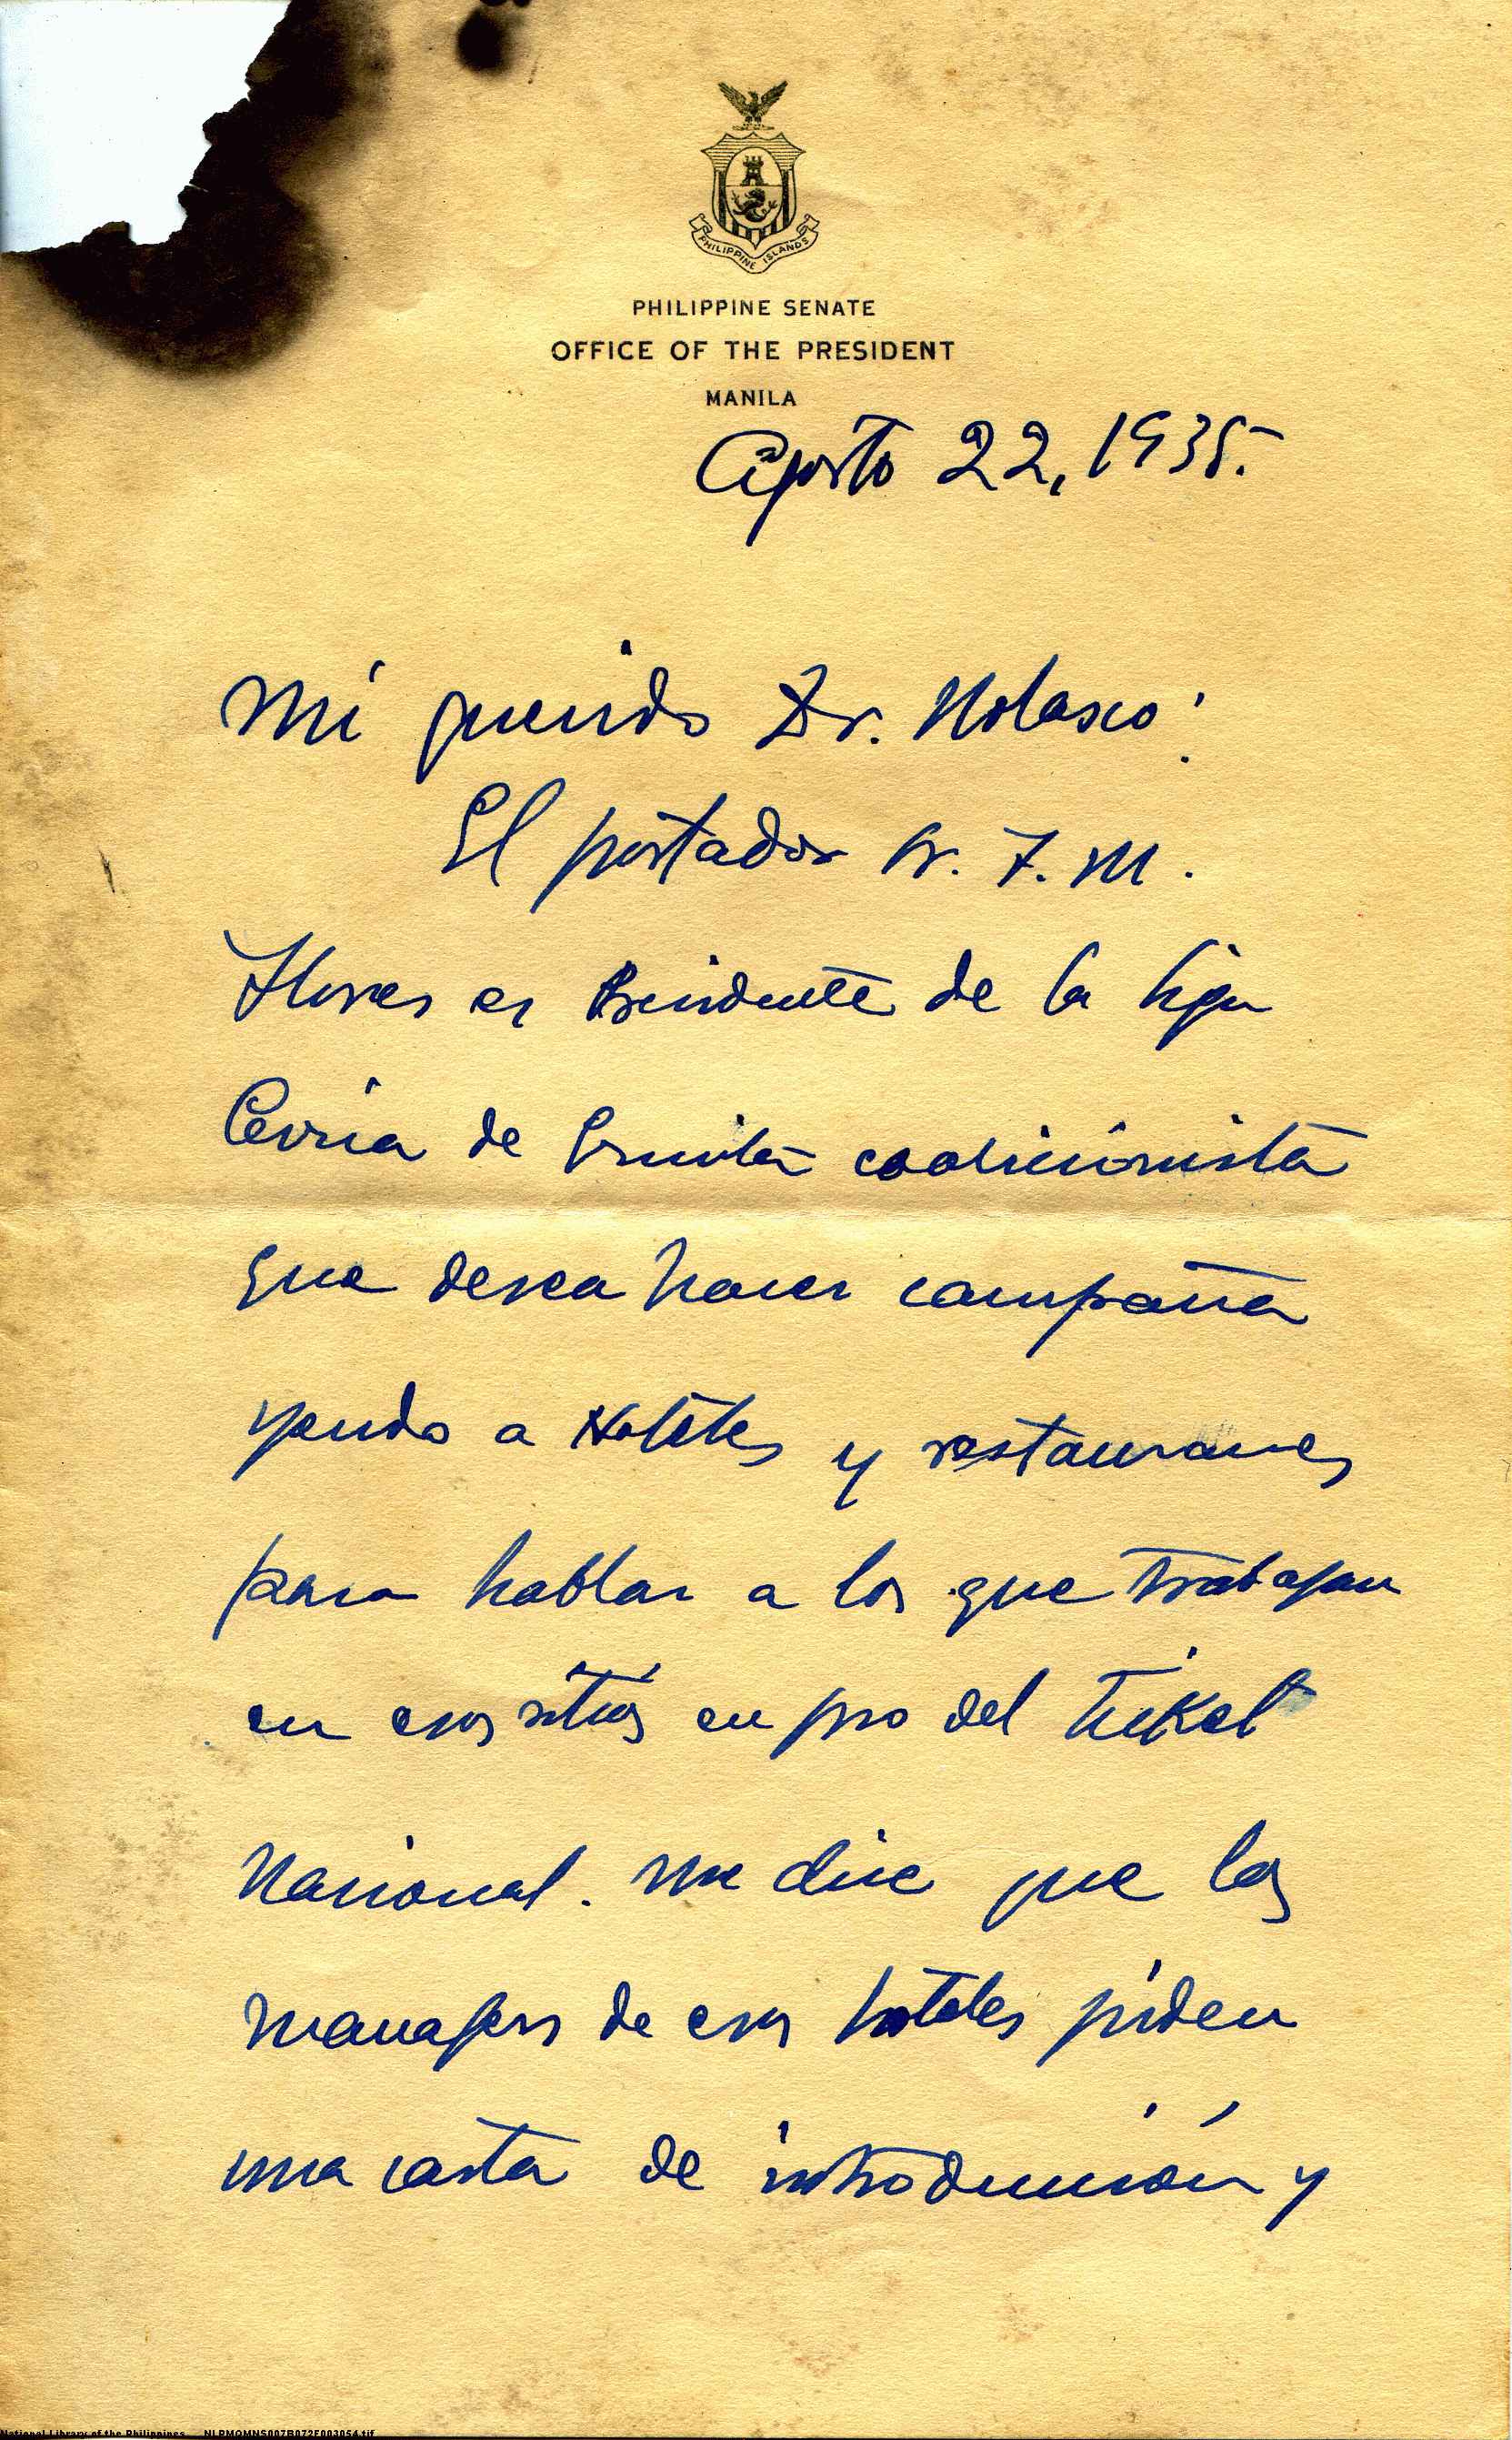 PHILIPPINE ISLANDS
PHILIPPINE SENATE
OFFICE OF THE PRESIDENT
MANILA
Agosto 22, 1935.
Mi querido Dr. Nolasco:
El portador Sr. F. M.
Flores es Presidente de la Liga
Cívica de Ermita coalicionista
que desea hacer campaña
yendo a Hoteles y restauranes
para hablar a los que trabajan
en esos sitios en pro del ticket
Nacional. Me dice que los
managers de esos hoteles piden
una carta de introducción y
National Library of the Philippines NLPMQMNS007B072F003054.tif